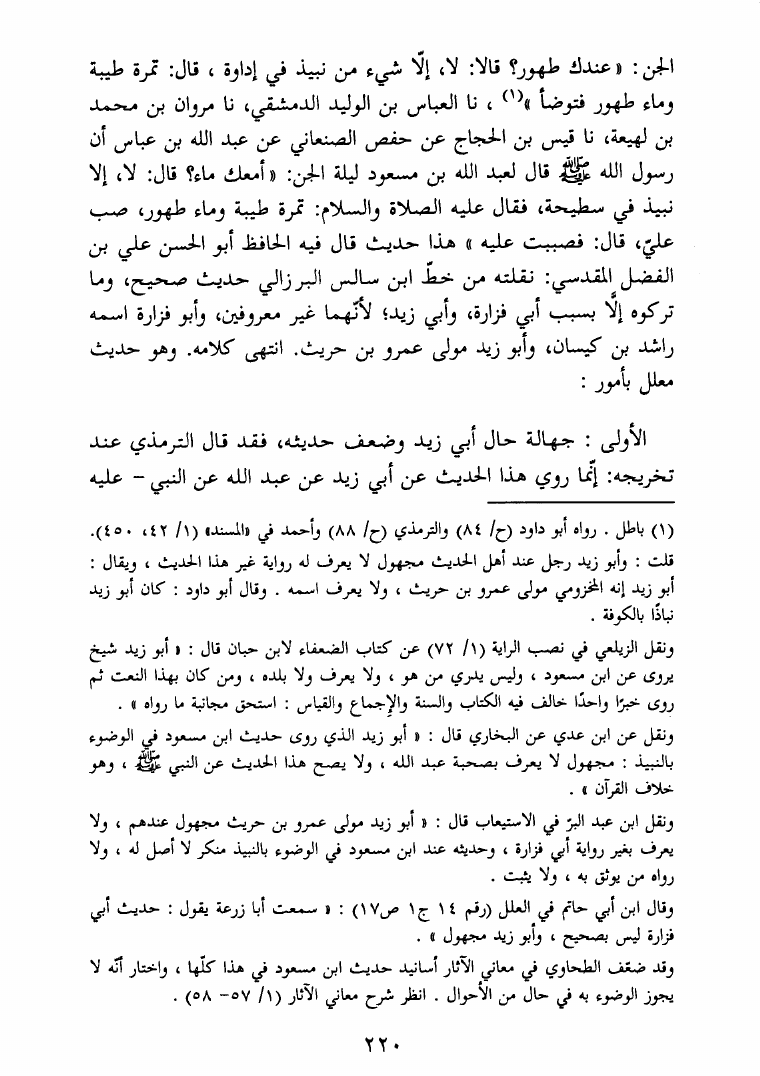 الجن: «عندك طهور؟ قالا: لا، إلّا شيء من نبيذ في إداوة ، قال: تمرة طيبة
وماء طهور فتوضأ »(١) ، نا العباس بن الوليد الدمشقي، نا مروان بن محمد
بن لهيعة، نا قيس بن الحجاج عن حفص الصنعاني عن عبد الله بن عباس أن
رسول الله ﷺ قال لعبد الله بن مسعود ليلة الجن: «أمعك ماء؟ قال: لا، إلا
نبيذ في سطيحة، فقال عليه الصلاة والسلام: تمرة طيبة وماء طهور، صب
عليّ، قال: فصببت عليه » هذا حديث قال فيه الحافظ أبو الحسن علي بن
الفضل المقدسي: نقلته من خطّ ابن سالس البرزالي حديث صحيح، وما
تركوه إلَّا بسبب أبي فزارة، وأبي زيد؛ لأنّهما غير معروفين، وأبو فزارة اسمه
راشد بن كيسان، وأبو زيد مولى عمرو بن حريث. انتهى كلامه. وهو حديث
معلل بأمور :
الأولى : جهالة حال أبي زيد وضعف حديثه، فقد قال الترمذي عند
تخريجه: إنّما روي هذا الحديث عن أبي زيد عن عبد الله عن النبي – عليه
(١) باطل . رواه أبو داود (ح/ ٨٤) والترمذي (ح/ ٨٨) وأحمد في «المسند» (١/ ٤٢، ٤٥٠).
قلت : وأبو زيد رجل عند أهل الحديث مجهول لا يعرف له رواية غير هذا الحديث ، ويقال :
أبو زيد إنه المخزومي مولى عمرو بن حريث ، ولا يعرف اسمه . وقال أبو داود : كان أبو زيد
نباذًا بالكوفة .
ونقل الزيلعي في نصب الراية (١/ ٧٢) عن كتاب الضعفاء لابن حبان قال : « أبو زيد شيخ
يروى عن ابن مسعود ، وليس يدري من هو ، ولا يعرف ولا بلده ، ومن كان بهذا النعت ثم
روى خبرًا واحدًا خالف فيه الكتاب والسنة والإجماع والقياس : استحق مجانبة ما رواه » .
ونقل عن ابن عدي عن البخاري قال : « أبو زيد الذي روى حديث ابن مسعود في الوضوء
بالنبيذ : مجهول لا يعرف بصحبة عبد الله ، ولا يصح هذا الحديث عن النبي ﷺ ، وهو
خلاف القرآن » .
ونقل ابن عبد البرّ في الاستيعاب قال : « أبو زيد مولى عمرو بن حريث مجهول عندهم ، ولا
يعرف بغير رواية أبي فزارة ، وحديثه عند ابن مسعود في الوضوء بالنبيذ منكر لا أصل له ، ولا
رواه من يوثق به ، ولا يثبت .
وقال ابن أبي حاتم في العلل (رقم ١٤ ج١ ص١٧) : « سمعت أبا زرعة يقول : حديث أبي
فزارة ليس بصحيح ، وأبو زيد مجهول » .
وقد ضعّف الطحاوي في معاني الآثار أسانيد حديث ابن مسعود في هذا كلّها ، واختار أنّه لا
يجوز الوضوء به في حال من الأحوال . انظر شرح معاني الآثار (١/ ٥٧– ٥٨) .
٢٢٠